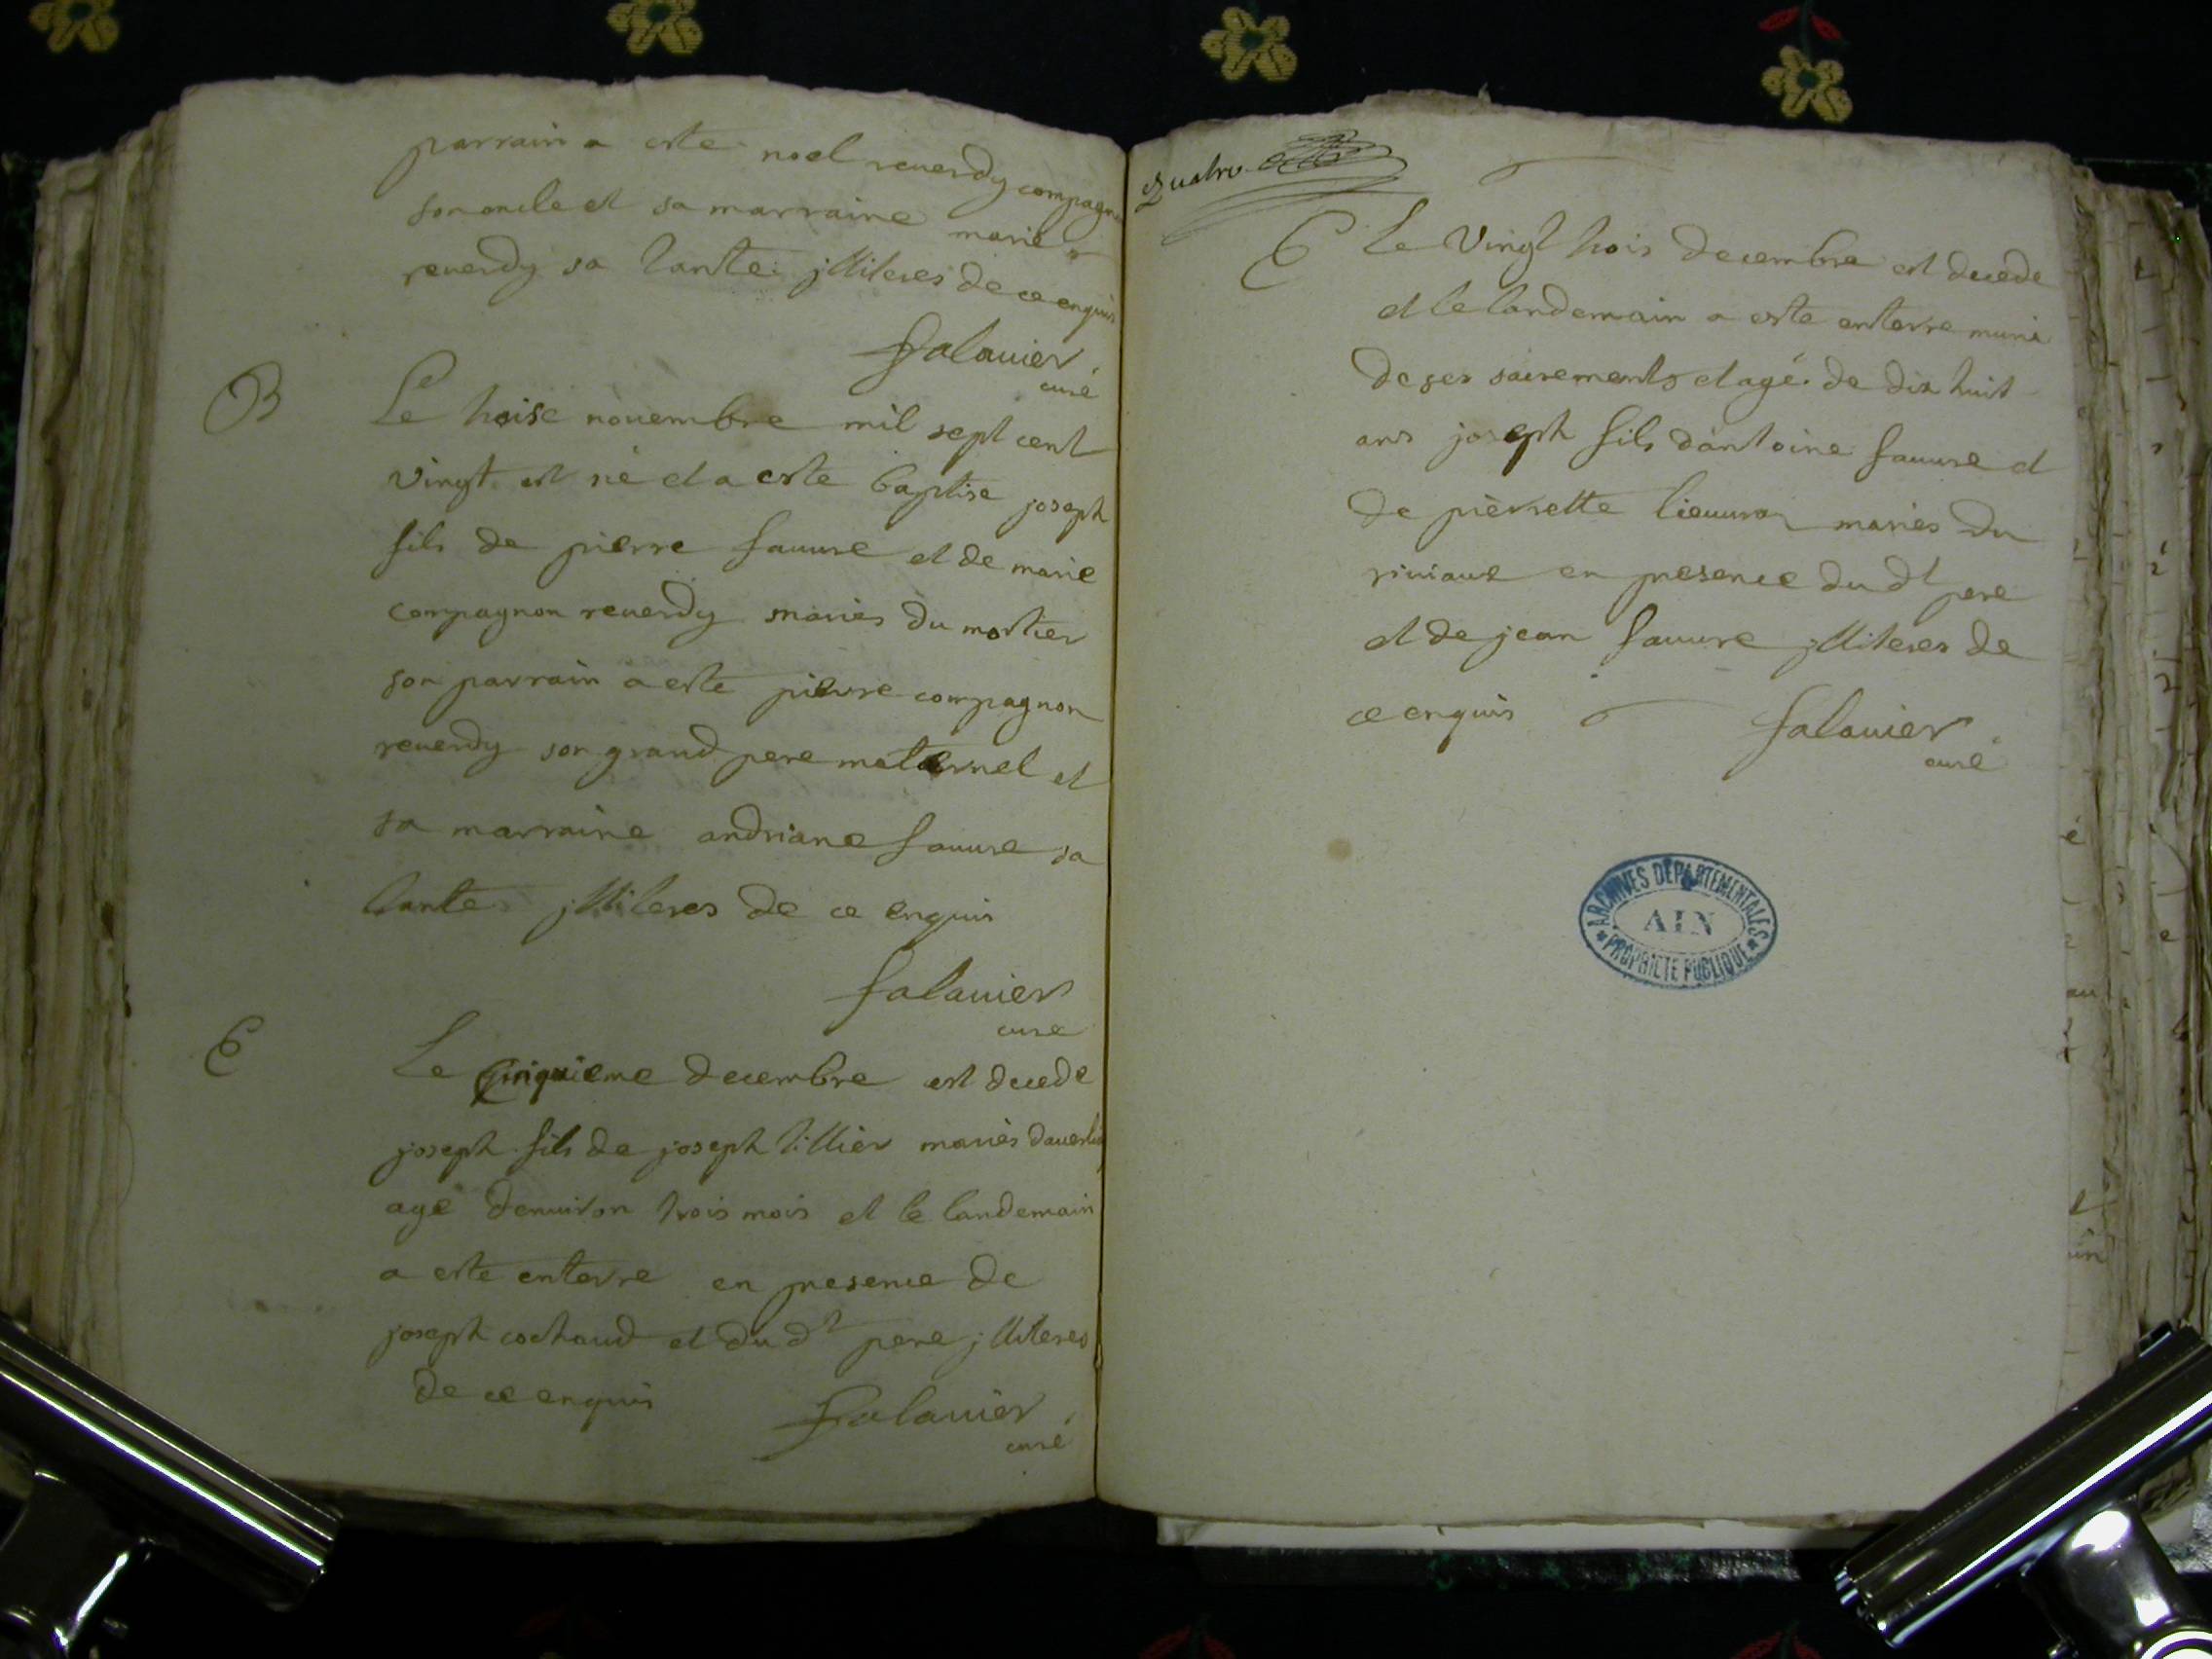 parrain a este noel reuerdy compagnon
son oncle et sa marraine marie
reuerdy sa tante jlliteres de ce enquis
falauier
curé
B
Le treise nouembre mil sept cent
vingt est né et a este baptise joseph
fils de pierre fauure et de marie
compagnon reuerdy mariés du mortier
son parrain a este pierre compagnon
reuerdy son grand pere maternel et
sa marraine andriane fauure sa
tante jlliteres de ce enquis
falauier
curé
E
Le cinquieme decembre est decede
joseph fils de joseph tillier mariés
agé denuiron trois mois et le landemain
a este enterre en presence de
joseph cochaud et du dt pere jlliteres
de ce enquis
falauier
curé
Quatre
E
Le vingt trois decembre est decede
et le landemain a este enterre muni
de ses sacrements et agé de dix huit
ans joseph fils dantoine fauure et
de pierrette mariés du
en presence du dt pere
et de jean fauure jlliteres de
ce enquis
falauier
curé
ARCHIVES DÉPARTEMENTALES
AIN
PROPRIÉTÉ PUBLIQUE